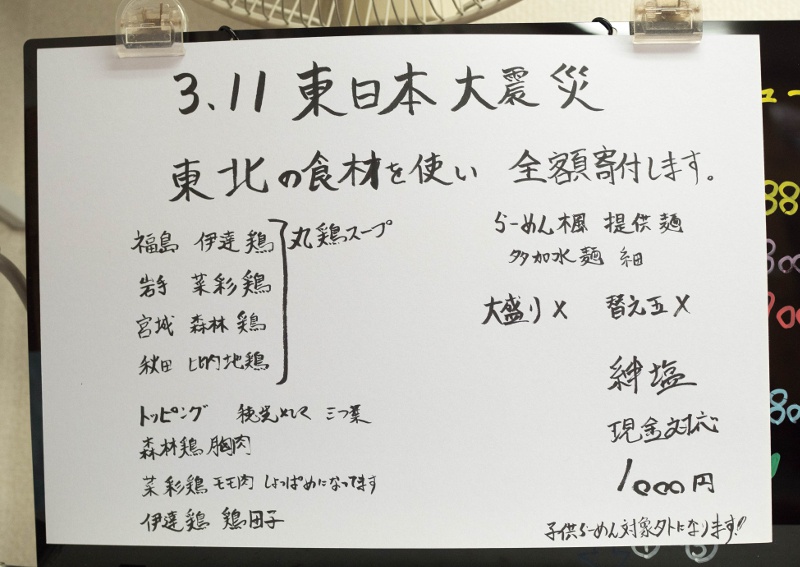 3.11 東日本大震災
東北の食材を使い 全額寄付します。
福島 伊達鶏
岩手 菜彩鶏
宮城 森林鶏
秋田 比内地鶏
丸鶏スープ
トッピング 穂先メンマ 三つ葉
森林鶏 胸肉
菜彩鶏 モモ肉 しょっぱめになってます
伊達鶏 鶏団子
らーめん楓 提供麺
多加水麺 細
大盛り× 替え玉×
絆塩
現金対応
1000円
子供らーめん対象外になります!!